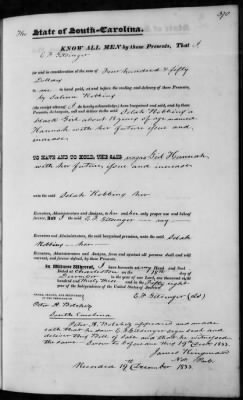 370
The State of South-Carolina.
KNOW ALL MEN by these Presents, That I
E P
for and in consideration of the sum of Four hundred & fifty
Dollars
to me in hand paid, at and before the sealing and delivery of these Presents,
by Selah Robbins
(the receipt whereof I do hereby acknowledge) have bargained and sold, and by these
Presents, do bargain, sell and deliver to the said Selah Robbins a
black Girl about 18 years of age named
Hannah with her future issue and
increase
TO HAVE AND TO HOLD, THE SAID negro Girl Hannah
with her future issue and increase
unto the said Selah Robbins her
Executors, Administrators and Assigns, to her and her only proper use and behoof
forever. And I the said E P my
Executors and Administrators, the said bargained premises, unto the said Selah
Robbins her
Executors, Administrators and Assigns, from and against all persons shall and will
warrant, and forever defend, by these Presents.
In Witness Whereof, I have hereunto set my Hand and Seal
Dated at Charleston on the
December in the year of our Lord, one thousand eight
hundred and thirty three and in the fifty eight
year of the Independence of the United States of America.
SIGNED, SEALED, AND DELIVERED
IN THE PRESENCE OF
E P (LS)
Peter A
South Carolina
Peter A appeared and made
oath that he saw E P sign seal and
deliver this Bill of Sale and that he witnessed
the same Sworn to before me this 19th Decr 1833.
James
Not Pub.
Recorded 19th December 1833.